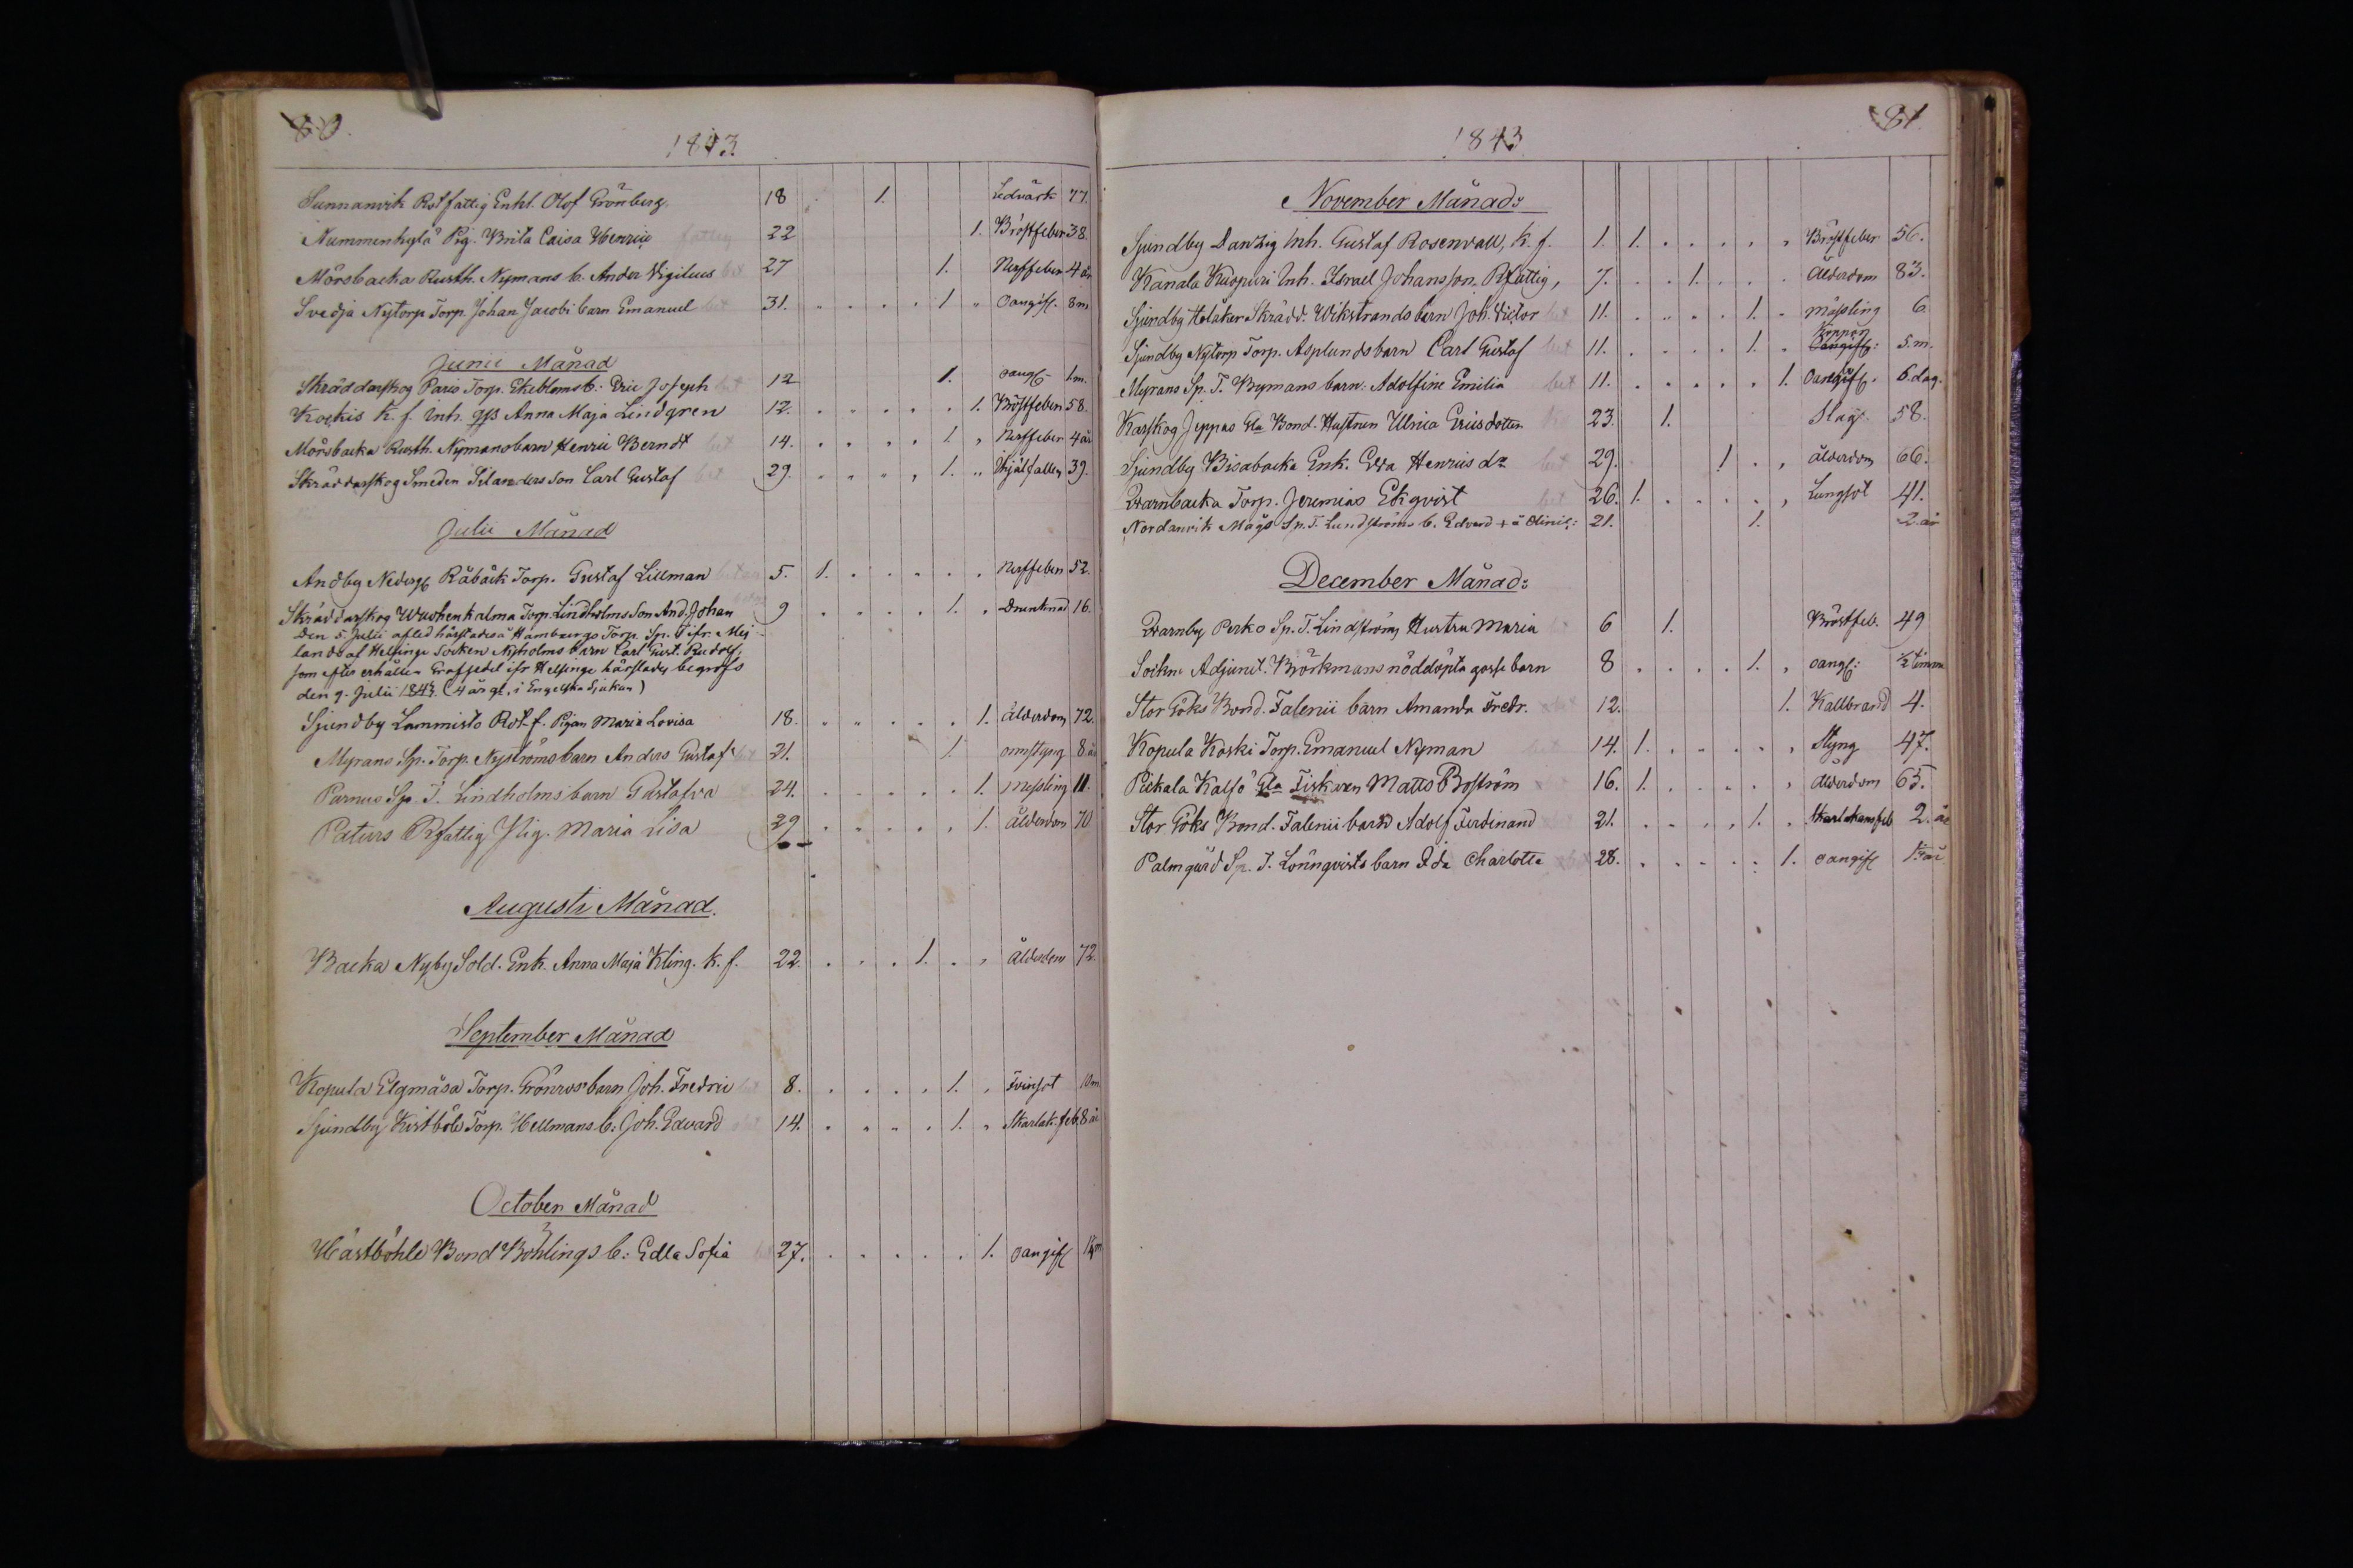 80.
1843
Sunnanvik Rotfattig Enkl. Olof Grönberg. 18 1. Ledvärk 77.
Nummenkylä Pig. Brita Caisa Henric fattig 22 1. Bröstfeber 38.
Mörsbacka Rusth. Nymans b. Ander Vigilius bet 27 1. Nerffeber 4 år
Svedja Nytorp Torp. Johan Jacobi barn Emanuel bet 31. 1 oangif. 8m
Junii Månad
Skräddarskog Pavis Torp. Ekebloms b: Eric Joseph bet 12 1. oangf 1m.
Kockis K. f. Inh. Anna Maja Lindgren 12. 1. Bröstfeber 58.
Mörsbacka Rusth. Nymans barn Henric Berndt bet 14. 1. Nerffeber 4 år
Skräddarskog Smeden Silanders Son Carl Gustaf bet 29. 1. ihjälfallen 39.
Julii Månad
Andby Nedergd Råbäck Torp. Gustaf Lillman 5. 1. Nerffeber 52.
Skräddarskog Wuohenkalma Torp. Lindholms Son And. Johan 9 1. Drunknad 16.
Den 5 Julii afled härstädes å Hambergs Torp. Sp. T. ifr. Mej-
lands af Helsinge Socken Nyholms barn Carl Gust. Rudolf,
som efter erhållen Graffsedel ifr Helsinge härstädes begrofs
den 9. Julii 1843. (4 år gl, i Engelska Sjukan)
Sjundby Lammisto Rot. f. Pigan Maria Lovisa 18. 1. Ålderdom 72.
Myrans Sp. Torp. Nyströms barn Anders Gustaf bet 21. 1. ormstyng 8 år
Parnus Sp. T. Lindholms barn Gustafva 24. 1. Messling 11.
Paturs Rfattig Pig. Maria Lisa 29 1. Ålderdom 70
Augusti Månad.
Backa Nyby Sold. Enk. Anna Maja Kling. K. f. 22. 1. ålderdom 72.
September Månad
Kopula Elgmåsa Torp. Grönros barn Joh. Fredric bet 8. 1. Tvinsot 10m
Sjundby Kistböle Torp. Hellmans b: Joh. Edvard bet 14. 1. Skarlak. feb. 8 år
October Månad
Hästböhle Bond Böhlings b: Edla Sofia 27. 1. oangif
81.
1843
November Månad:
Sjundby Danzig Inh. Gustaf Rosenvall, K. f. 1. 1. Bröstfeber 56.
Kanala Kuopuri Inh. Israel Johansson Rfattig, 7. 1. Ålderdom 83.
Sjundby Holåker Skrädd. Wikstrands barn Joh. Victor bet 11. 1. Mässling 6.
Sjundby Nytorp Torp. Asplunds barn Carl Gustaf bet 11. 1. Koppor oangifv: 5.m.
Myrans Sp. T. Bymans barn: Adolfine Emilia bet 11. 1. Oangif. 6.dag.
Karskog Jeppas Gla Bond. Hustrun Ulrica Ericsdotter 23. 1. Slag. 58.
Sjundby Bisabacka Enk. Edda Henrics dr bet 29. 1 ålderdom 66.
Qvarnbacka Torp. Jeremias Ekqvist bet 26. 1. Lungsot 41.
Nordanvik Mågs Sp. T. Lundströms b. Edvard 21. 1. 2. år
December Månad:
Qvarnby Perko Sp. T. Lindströms Hustru Maria 6 1. Bröstfeb. 49
Sockn. Adjunct. Björkmans nöddöpta gosse barn 8 1. oangf: ½ timme
Stor Göks Bond. Falenii barn Amanda Fredr. bet 12. 1. Kallbrand 4.
Kopula Koski Torp. Emanuel Nyman bet 14. 1. Styng 47.
Pickala Kalfö Gla Fiskaren Matts Boström 16. 1. Ålderdom 65.
Stor Göks Bond. Falenii barn Adolf Ferdinand 21. 1. Skarlakansfeb 2. år
Palmgård Sp. T. Lönnqvists barn Ida Charlotte bet 28. 1. oangif